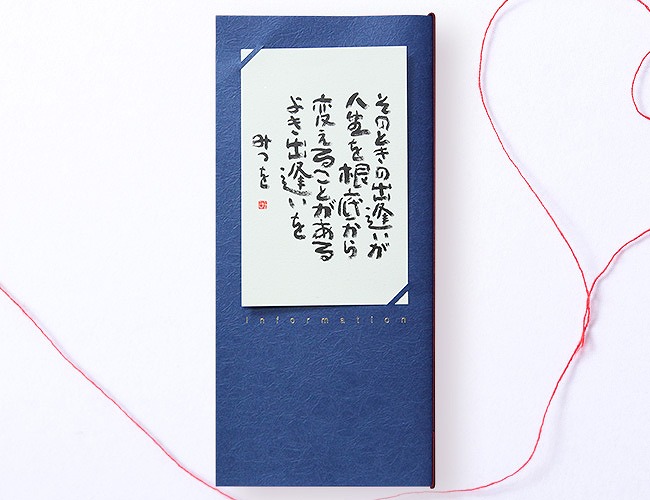 そのときの出逢いが
人生を根底から
変えることがある
よき出逢いを
みつを
information